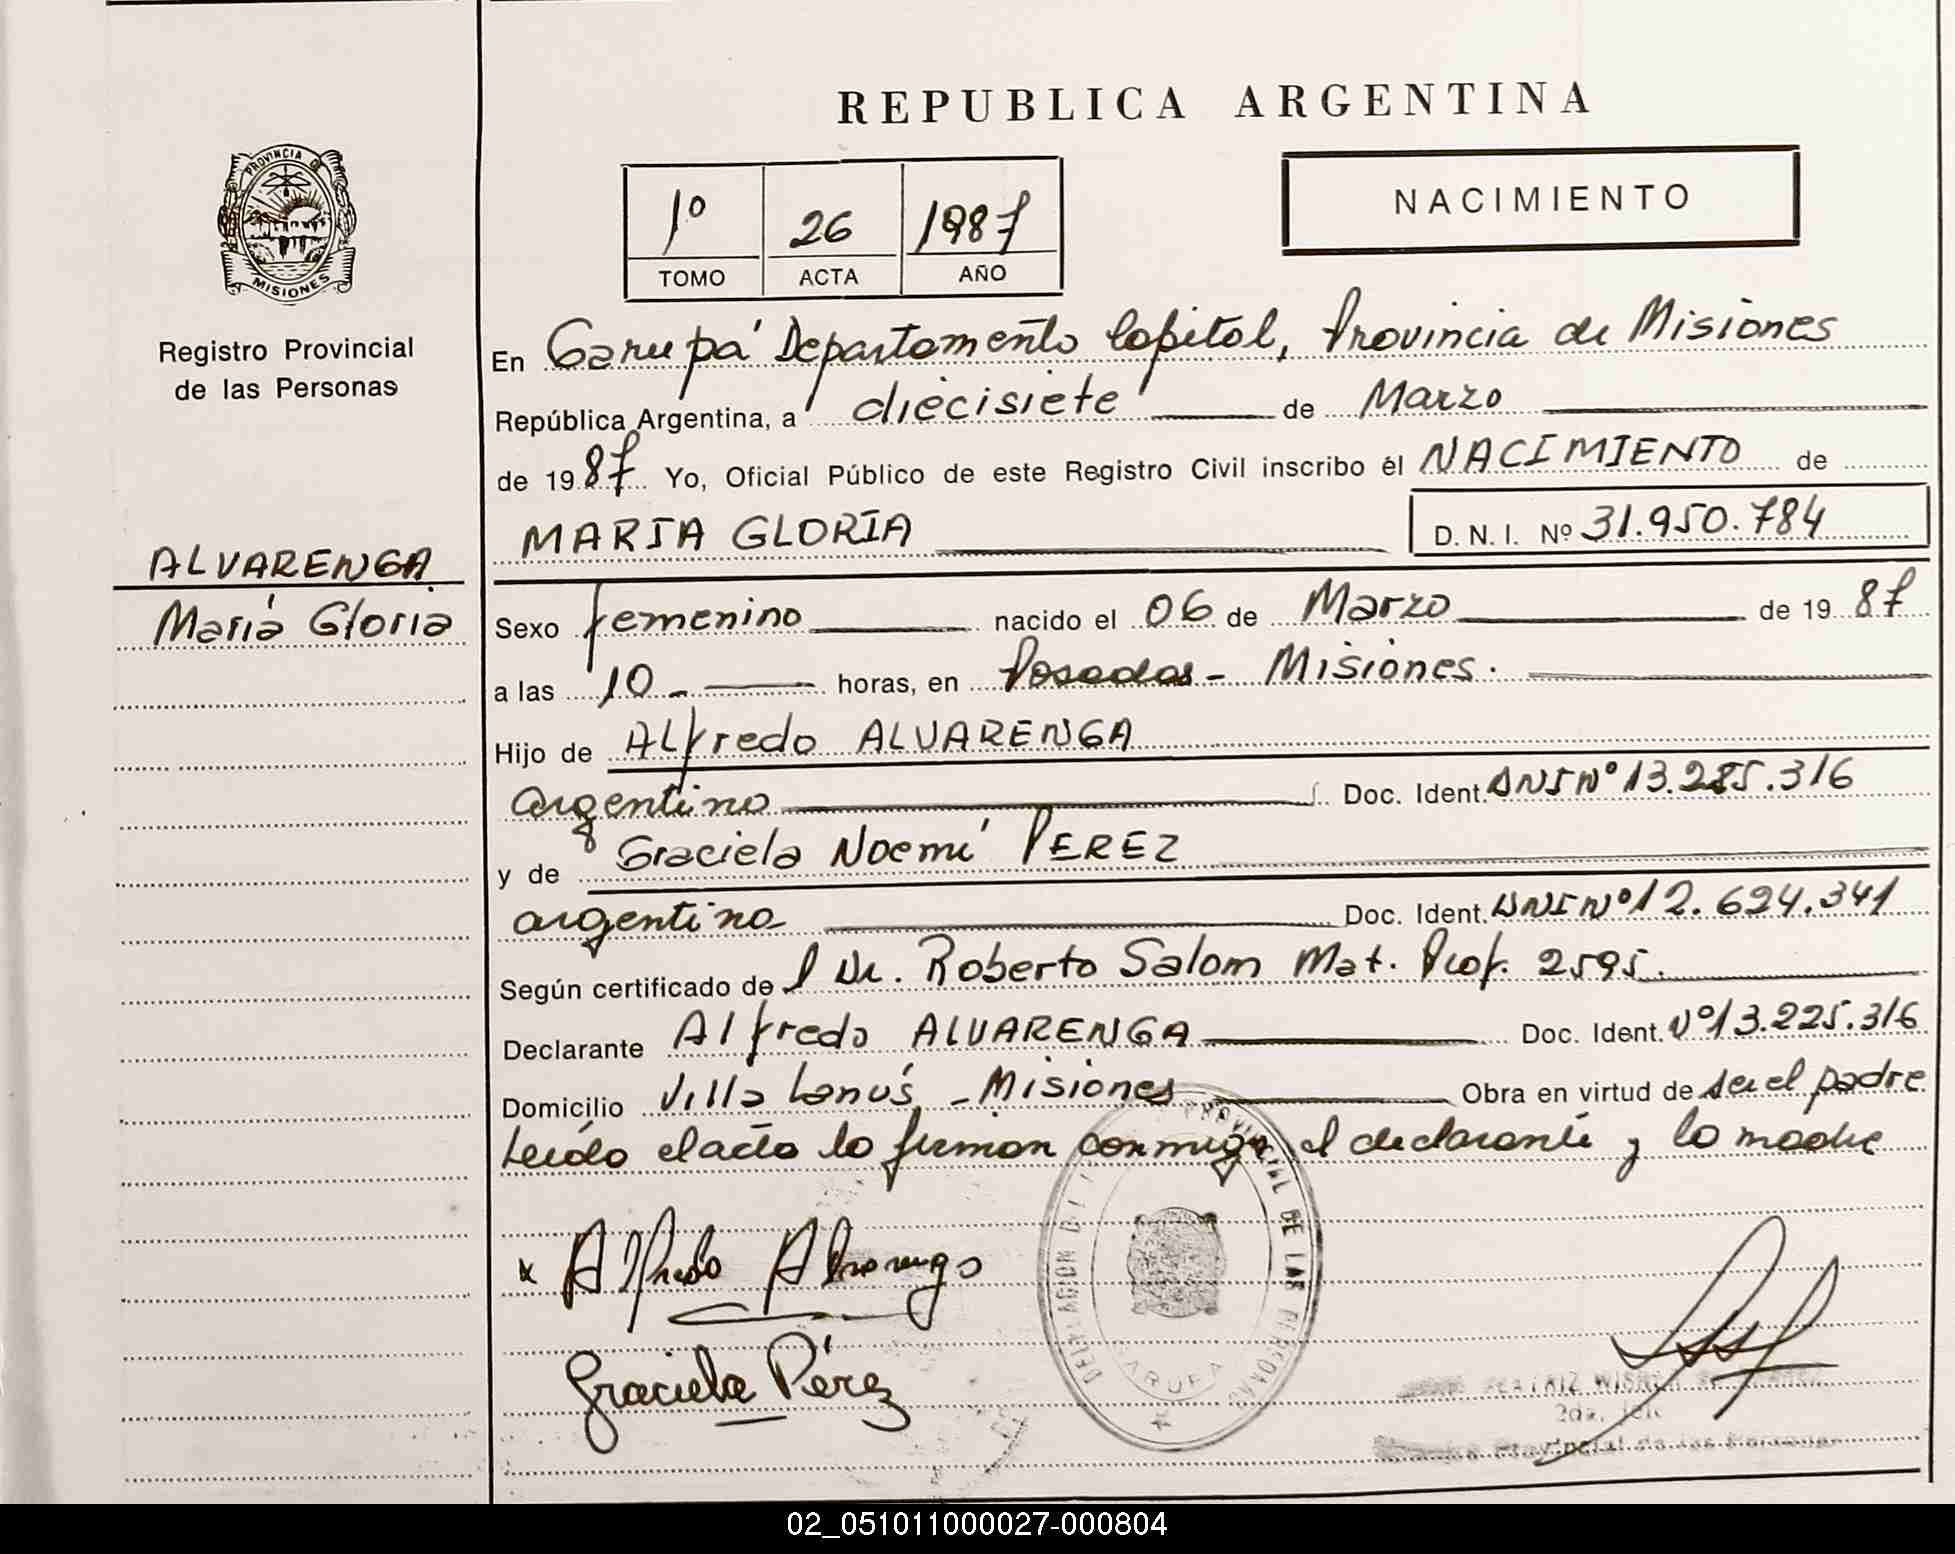 REPUBLICA ARGENTINA
PROVINCIA DE
MISIONES
Registro Provincial
de las Personas
1º 26 1987
TOMO ACTA AÑO
NACIMIENTO
En Garupá Departamento Capital, Provincia de Misiones
República Argentina, a diecisiete de Marzo
de 1987 Yo, Oficial Público de este Registro Civil inscribo él NACIMIENTO de
MARIA GLORIA D. N. I. Nº 31.950.784
ALVARENGA
María Gloria
Sexo femenino nacido el 06 de Marzo de 1987
a las 10.- horas, en Posadas - Misiones.
Hijo de Alfredo ALVARENGA
argentino Doc. Ident. DNI Nº 13.225.316
y de Graciela Noemí PEREZ
argentina Doc. Ident. DNI Nº 12.624.341
Según certificado del Dr. Roberto Salom Mat. Prof. 2595.
Declarante Alfredo ALVARENGA Doc. Ident. Nº 13.225.316
Domicilio Villa Lanús - Misiones Obra en virtud de ser el padre
Leído el acta la firman conmigo el declarante y la madre
x Alfredo Alvarenga
Graciela Pérez
PROVINCIAL DE LAS PERSONAS
GARUPA
BEATRIZ
2da. Jefe
Provincial de las Personas
02_051011000027-000804